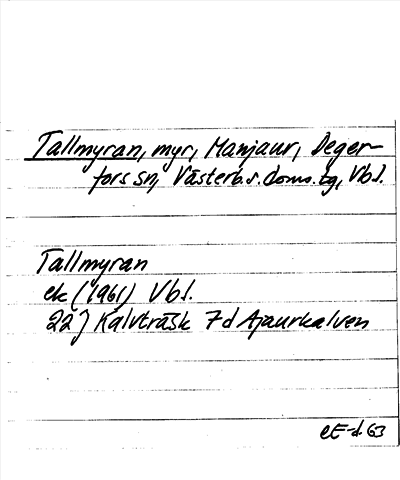 Tallmyran, myr, Manjaur, Deger-
fors sn, Västerb.s. doms.tg, Vbl.
Tallmyran
ek (1961) Vbl.
22J Kalvträsk 7d Ajaurkalven
CE-d 63